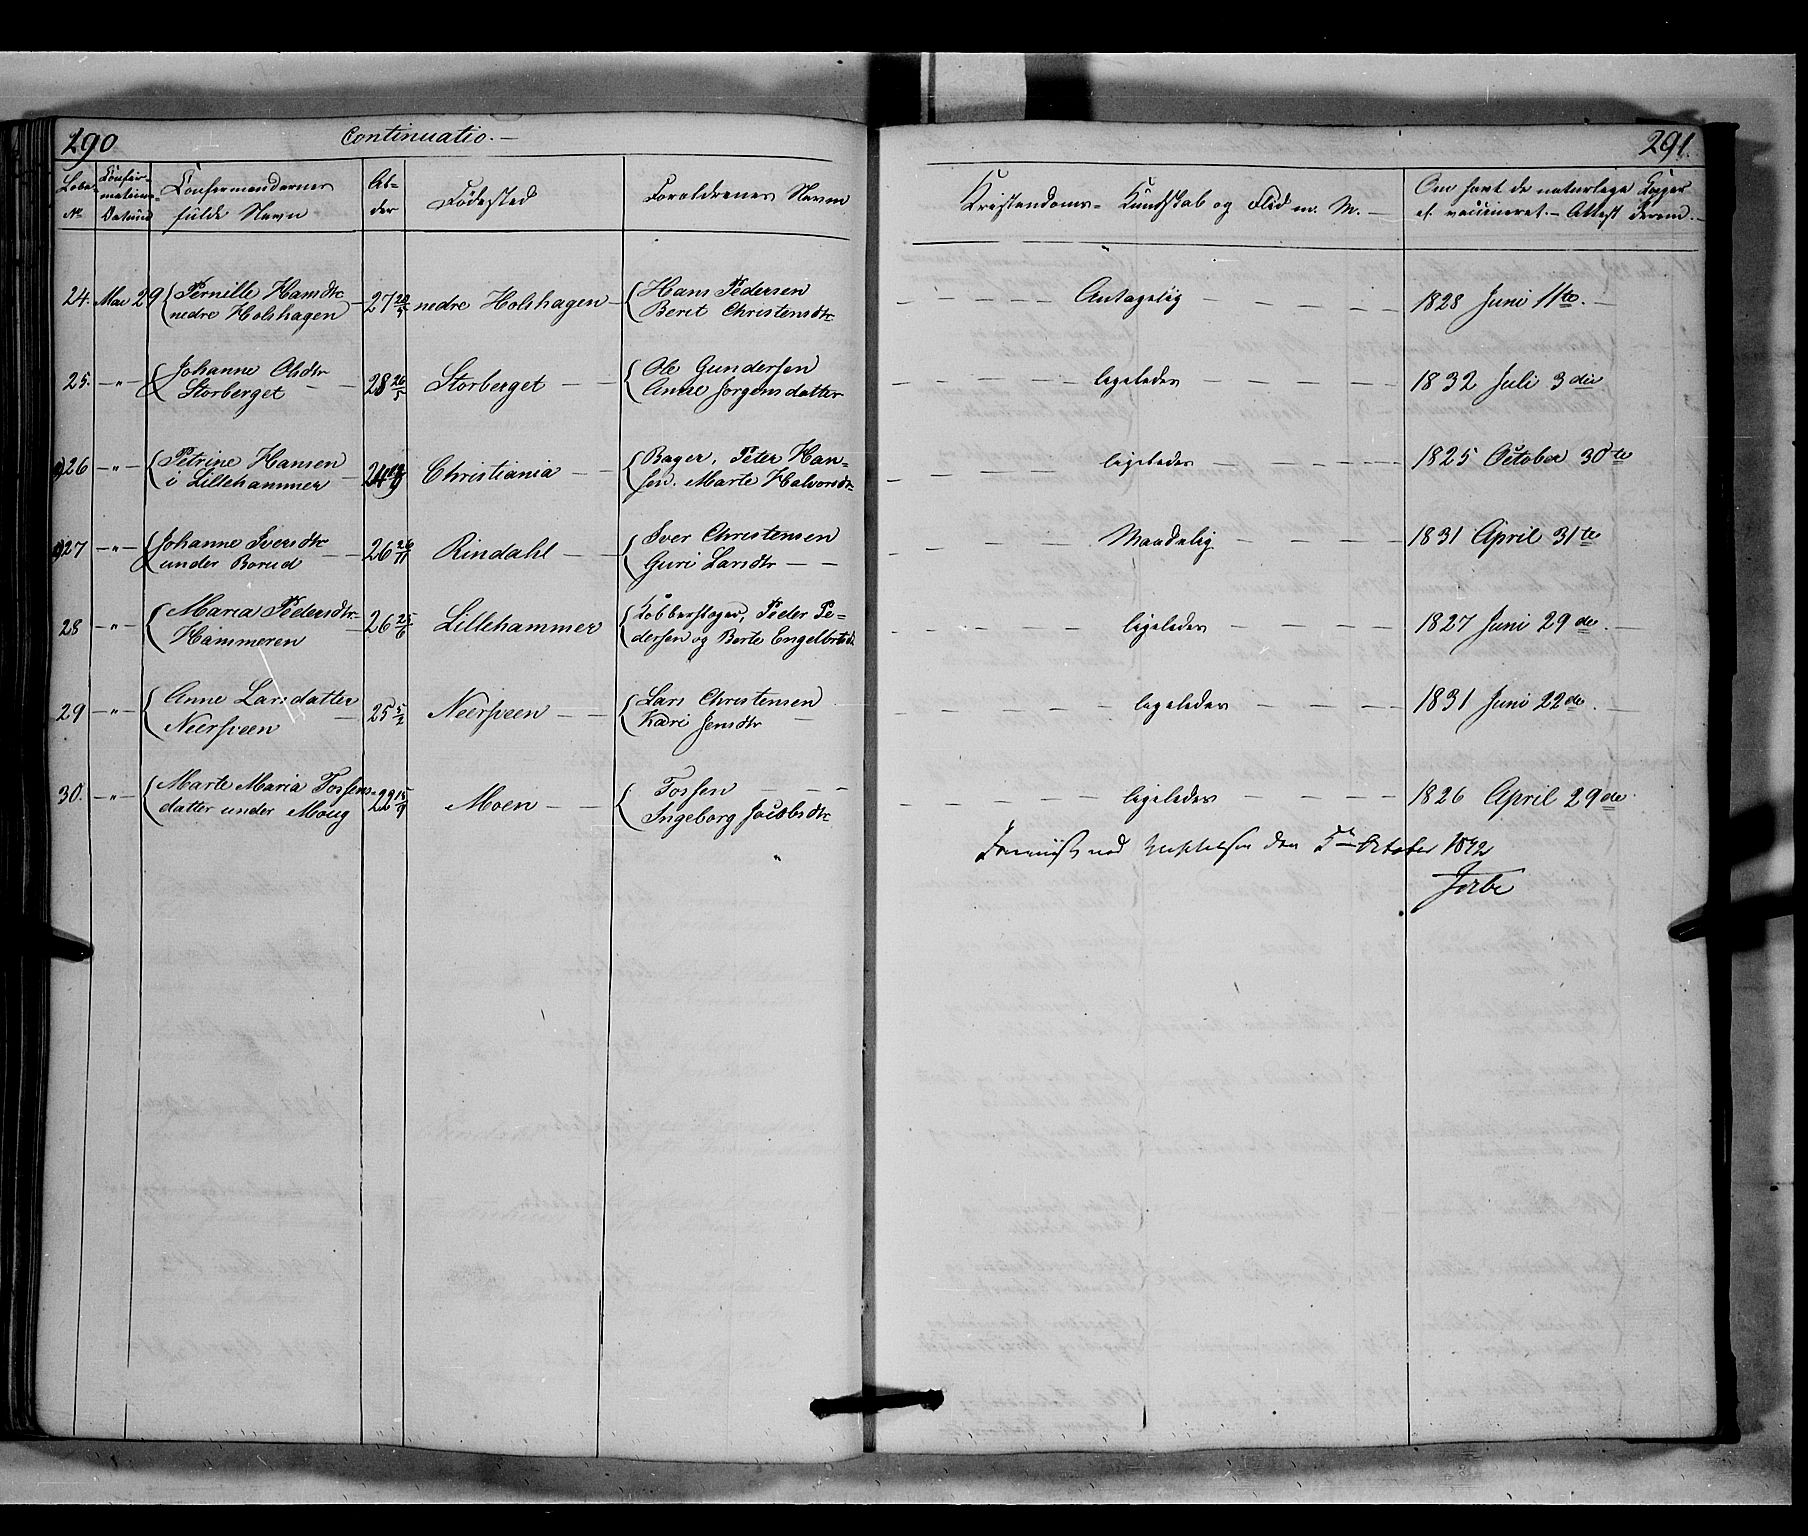 290 Continuatio.—
Løbe No
Confirmations Datum
Confirmandernes fulde Navn
Alder
Fødested
Forældrenes Navn
24. Mai 29 Pernille Hansdtr 27 nedre Holshagen Hans Pedersen
nedre Holshagen Berit Christensdtr
25. —"— Johanne Olsdtr 28 26/5 Storberget Ole Gundersen
Storberget Anne Jørgensdatter
26 —"— Petrine Hansen Christiania Bager, Peter Han-
i Lillehammer sen. Marte Halvorsdtr
27 —"— Johanne Iversdtr 26 26/11 Rindahl Iver Christensen
under Borud Guri Larsdtr
28 —"— Maria Pedersdtr 26 25/6 Lillehammer Kobberslager, Peder Pe-
Hammeren dersen og Berte Engelbrtsdtr
29 —"— Anne Larsdatter 25 5/2 Neersveen Lars Christensen
Neersveen Kari Jensdtr
30. —"— Marte Maria Tossens- 15/9 Moen Tossen
datter under Moug Ingeborg Jacobsdtr
291.
Kristendoms- Kundskab og Flid m. M. —
Om havt de naturlege Kopper
el. vaccineret. — Attest derom.
Antagelig 1828 Juni 11te.
ligeledes 1832 Juli 3die
ligeledes 1825 October 30te
Maadelig 1831 April 31te
ligeledes 1827 Juni 29de.
ligeledes 1831 Juni 22de.
ligeledes 1826 April 29de.
den 5te October 1842